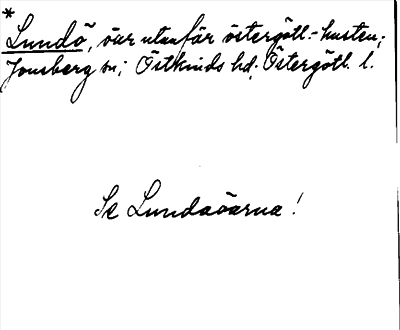 *
Lundö, öar utanför östergötl.-kusten;
Jonsberg sn; Östkinds hd; Östergötl. l.
Se Lundaöarna!